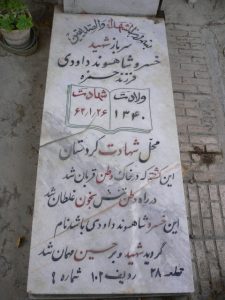 سرباز شهید
خسرو شاهسوند داودی
فرزند حمزه
ولادت شهادت
۱۳۴۰ ۶۲/۱/۲۶
محل شهادت کردستان
این کشته که در خاک وطن قربان شد
در راه وطن بخون غلطان شد
این خسرو شاهسوند داودی باشد نام
گردید شهید و بر حسین مهمان شد
قطعه ۲۸ ردیف ۱۰۲ شماره ۹